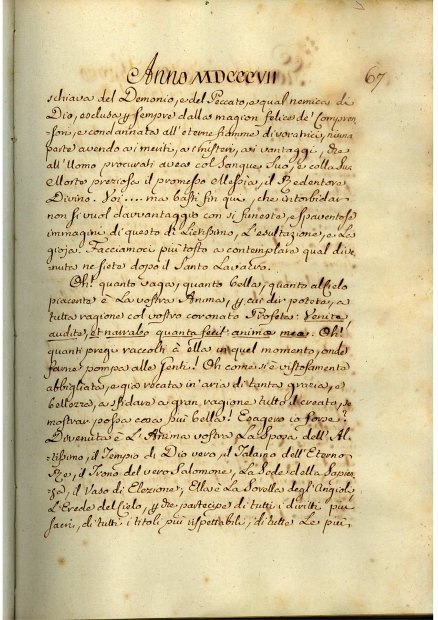 Anno MDCCCVII
67
schiava del Demonio, e del Peccato, e qual nemica di
Dio, esclusa p sempre dalla magion felice de' Compren-
sori, e condannata all'eterne fiamme divoratrici, niuna
parte avendo ai meriti, a i misteri, a i vantaggi, che
all'Uomo procurati avea col Sangue Suo, e colla Sua
Morte preziosa il promesso Messia, il Redentore
Divino. Voi.... ma basti fin qui, che intorbidar
non si vuol davvantaggio con sì funeste, e spaventose
immagini di questo dì Lietissimo, l'esultazione, e la
gioja. Facciamoci più tosto a contemplare qual dive-
nuta ne siete dopo il Santo Lavacro.
Oh! quanto vaga, quanto bella, quanto al Cielo
piacente è La vostra Anima, p cui dir potete, a
tutta ragione col vostro coronato Profeta: Venite
audite, et narrabo quanta fecit animæ meæ. Oh!
quanti pregi raccolti à ella in quel momento, onde
farne pompa alle Genti! Oh come s'è vistosamente
abbigliata, e già recata in aria di tanta grazia, e
bellezza, a sfidare a gran ragione tutto il creato, se
mostrar possa cosa più bella! Esagero io forse?
Divenuta è L'Anima vostra La Sposa dell'Al-
tissimo, il Tempio di Dio vero, il Talamo dell'Eterno
Re, il Trono del vero Salomone, La Sede della Sapien-
za, il Vaso di Elezione, Ella è La Sorella degl'Angioli,
L'Erede del Cielo, partecipe di tutti i diritti più
sacri, di tutti i titoli più rispettabili, di tutte Le più